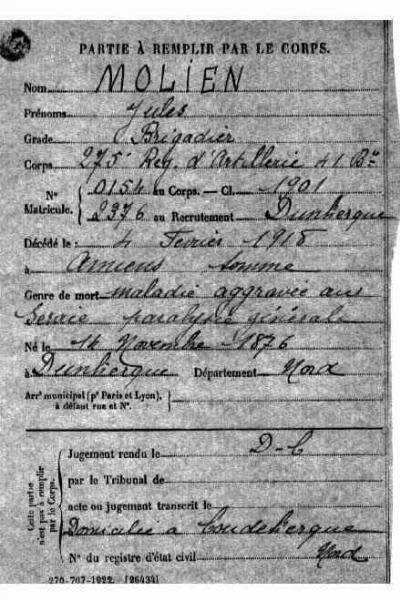 PARTIE À REMPLIR PAR LE CORPS.
Nom MOLIEN
Prénoms Jules
Grade Brigadier
Corps 275e Reg. d'Artillerie 41 Bie
N° Matricule. { 0154 au Corps. — Cl. 1901
2376 au Recrutement Dunkerque
Décédé le : 4 Fevrier 1918
à Amiens Somme
Genre de mort maladie aggravée au
Service paralysie générale
Né le 14 Novembre 1876
à Dunkerque Département Nord
Arrt municipal (pr Paris et Lyon),
à défaut rue et N°.
Cette partie n'est pas à remplir par le Corps.
Jugement rendu le D-C
par le Tribunal de
acte ou jugement transcrit le
Domicilié à Coudekerque
N° du registre d'état civil Nord
270-707-1922. [26434]